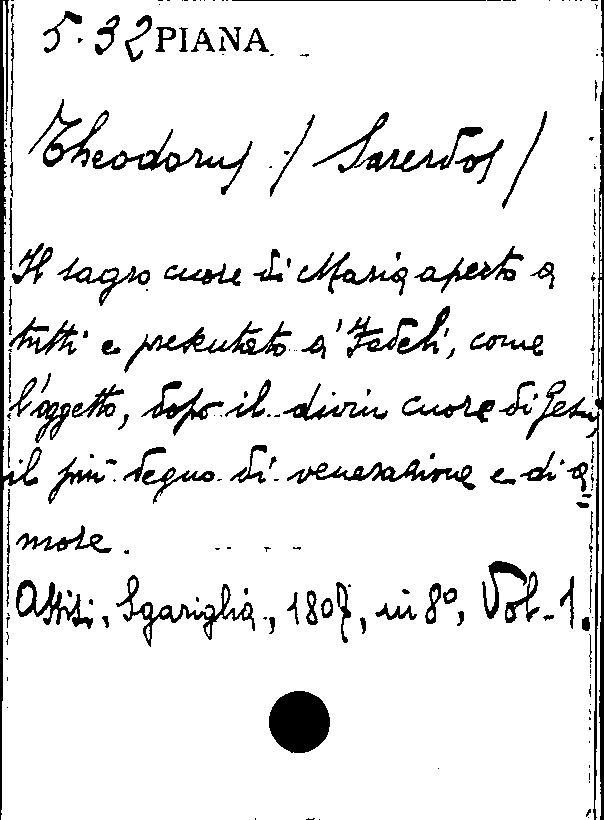 5. 32 PIANA
Theodorus / Sacerdos /
Il sagro cuore di Maria aperto a
tutti e presentato a' Fedeli, come
l'oggetto, dopo il divin cuore di Gesù,
il più degno di venerazione e di a=
more.
Assisi, Sgariglia, 1807, in 8º, Vol. 1.